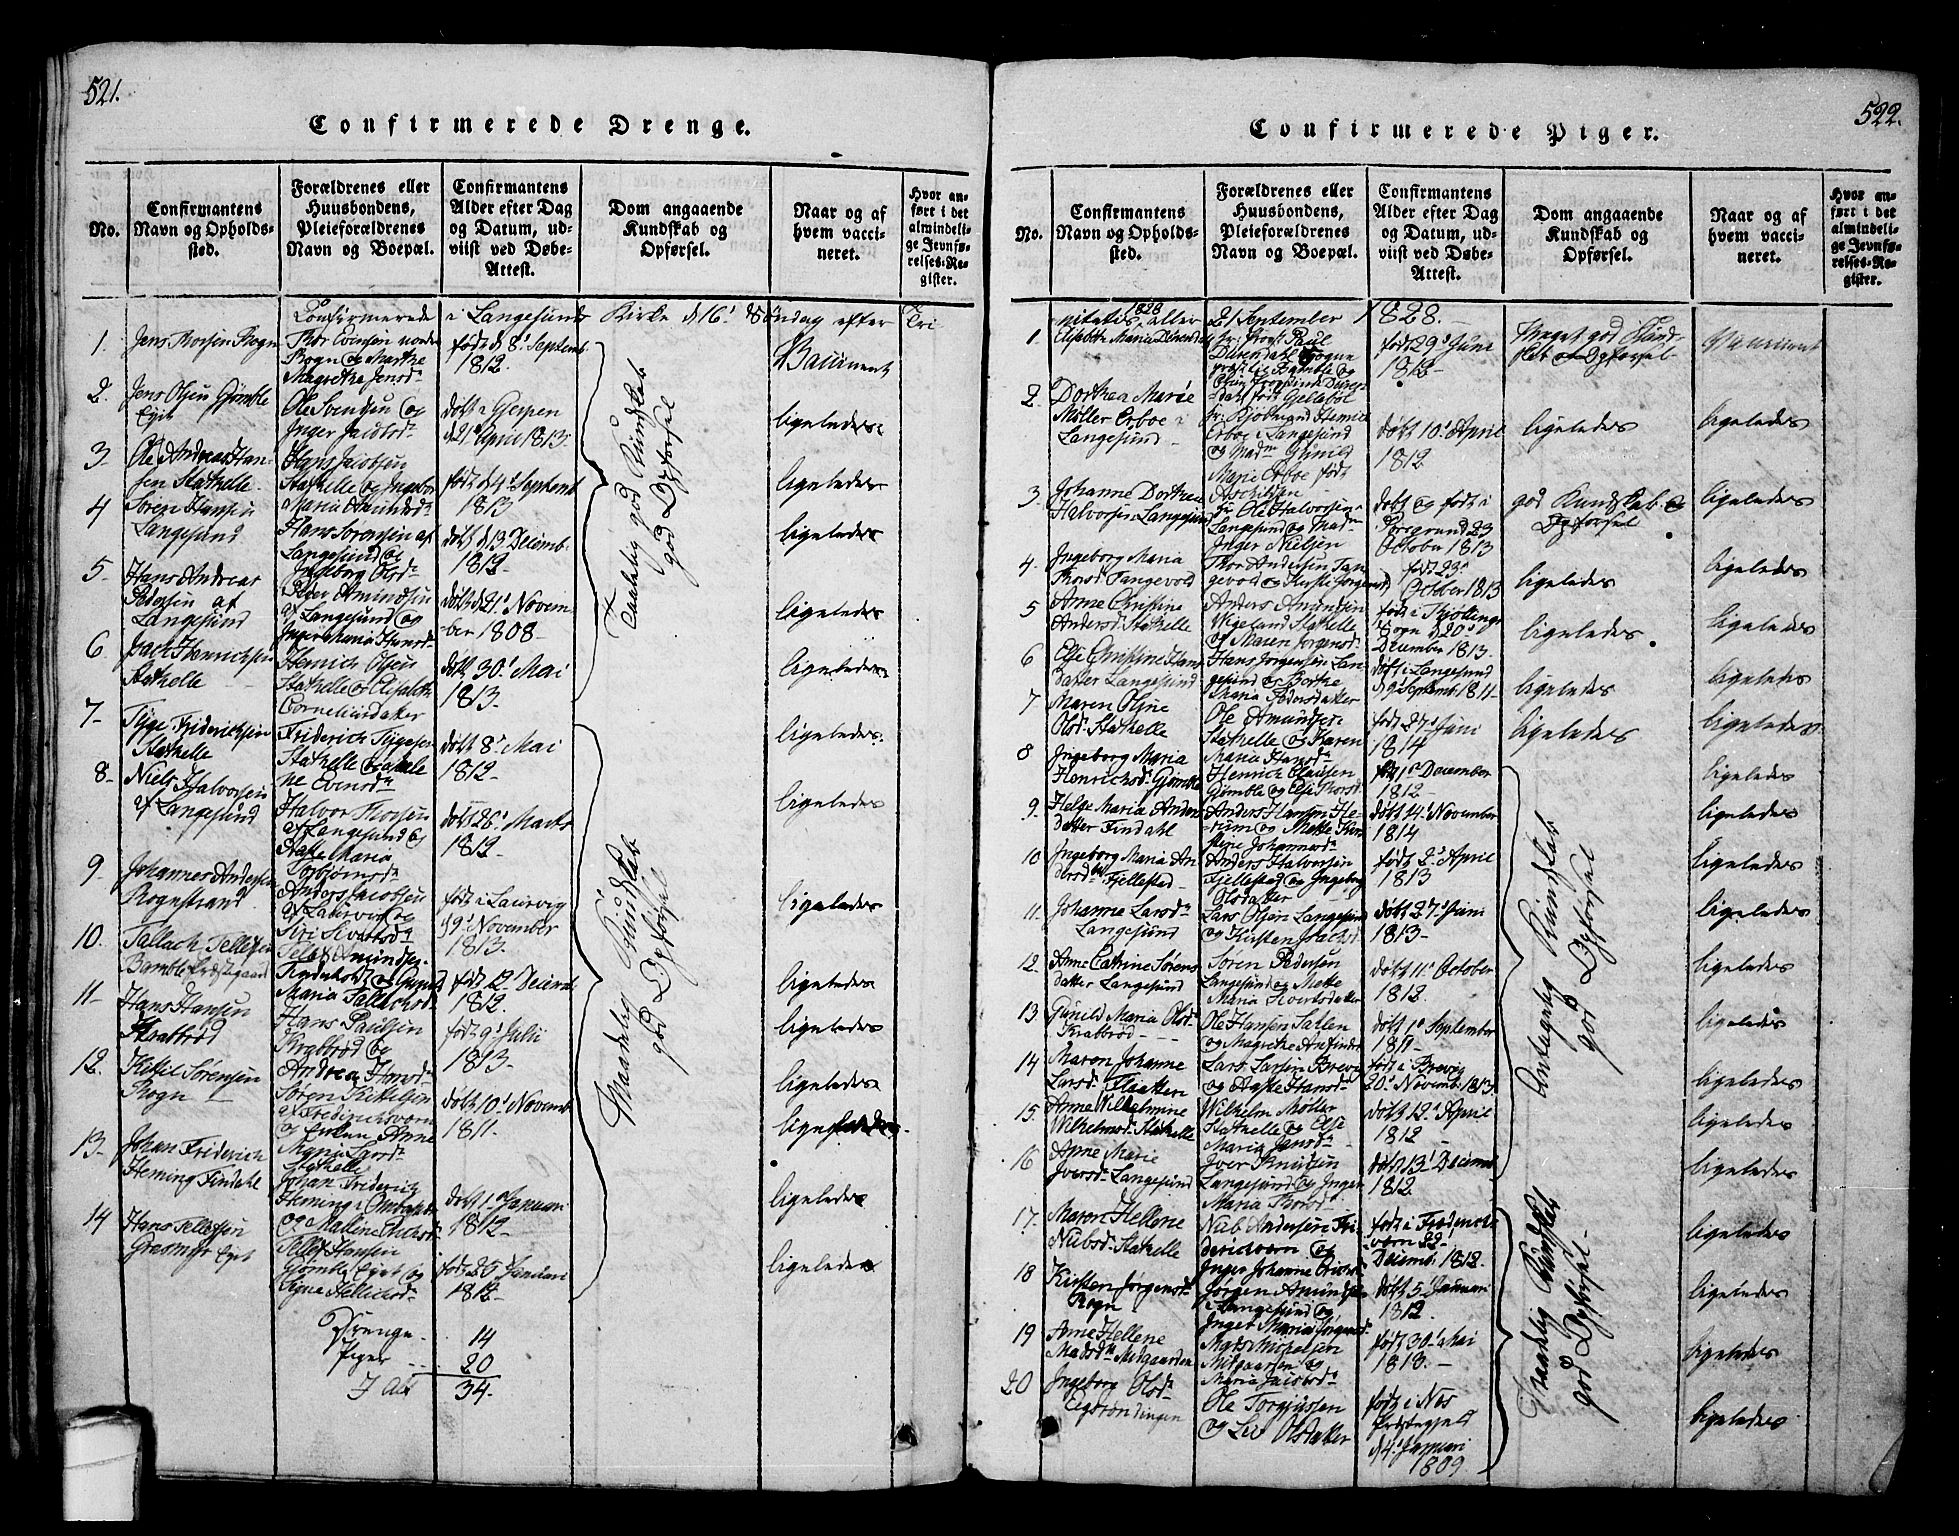 521.
Confirmerede Drenge.
No.
Confirmantens Navn og Opholds-sted.
Forældrenes eller Huusbondens, Pleieforældrenes Navn og Boepæl.
Confirmantens Alder efter Dag og Datum, ud-viist ved Døbe-Attest.
Dom angaaende Kundskab og Opførsel.
Naar og af hvem vacci-neret.
Hvor an-ført i det almindeli-ge Jevnfø-relses-Re-gister.
Confirmerede i Langesunds Kirke d. 16' Søndag efter Tri
1. Jens Thorsen Rogn
Rogn og Marthe
Magrethe Jensd.
født d. 8' Septemb.
1812.
Vaccineret
2. Jens Olsen Gjømle
Eget
Ole Svendsen og
Inger Jacobsd.
døbt i Gjerpen
d. 21' April 1813.
ligeledes
3. Ole Andreas Han-
sen Stathelle
Hans Jacobsen
Stathelle og Ingebor
Maria Amundsd.
født d. 4' Septemb
1813
ligeledes
4 Søren Hansen
Langesund
Hans Sørensen af
Langesund og
Ingeborg Olsd.
døbt d. 13 Decemb.
1812
ligeledes
5. Hans Andreas
Pedersen af
Langesund
Peder Amundsen
af Langesund og
Inger Maria Hansd.
døbt d. 21' Novem-
ber 1808
ligeledes
Taalelig god Kundskab
god Opførsel
6. Henrichsen
Stathelle
Henrich Olsen
Stathelle og Elisabeth
Corneliusdatter
døbt 30' Mai
1813.
ligeledes
7 Tyge Friderichsen
Stathelle
Friderich Tygesen
Stathelle og
ne Evensd.
døbt 8' Mai
1812
ligeledes
8 Niels Halvorsen
af Langesund
Halvor Thorsen
af Langesund og
Maria
Torbjørnsd.
døbt 26' Marts
1812
ligeledes
9 Johannes Andersen
Rognstrand
Anders Jacobsen
af Laurvig og
Siri Sivertsd.
født i Laurvig
d 9' November
1813.
ligeledes
10. Tallach Tellefsen
Bamble Præstegaard
Tellef Amundsen
Maria Tallachsd.
født 12 Decemb
1812.
ligeledes
11 Hans Hansen
Krabberød
Hans Paulsen
Krabberød og
Andrea Hansd.
født 9' Julii
1813.
ligeledes
12. Kittil Sørensen
Rogn
Søren Kittilsen
af Fredrichsværn
og Anne
Maria Larsd.
Stathelle
døbt 10' Novemb
1811.
ligeledes
Maadelig Kundskab
god Opførsel
13 Johan Friderich
Heming Findahl
Johan Friderich
Heming
og Malene Erichsd.
døbt 1' Januari
1812
ligeledes
14 Hans Tellefsen
Grasmyr Eget
Tellef Hansen
Gjømle Eget og
Signe Hellichsd.
født 25 Januari
1812
ligeledes
Drenge 14
Piger 20
I Alt 34.
522.
Confirmerede Piger.
No.
Confirmantens Navn og Opholds-sted.
Forældrenes eller Huusbondens, Pleieforældrenes Navn og Boepæl.
Confirmantens Alder efter Dag og Datum, ud-viist ved Døbe-Attest.
Dom angaaende Kundskab og Opførsel.
Naar og af hvem vacci-neret.
Hvor an-ført i det almindeli-ge Jevnfø-relses-Re-gister.
nitatis eller 21 September 1828.
1. Elisabeth Maria Dürendal
Hr. Provst Paul
Dürendahl Sogne
præst i Bamble og
født 29' Juni
1813
Meget god Kund-
skab og Opførsel
Vaccineret
2 Dorthea Marie
Møller Ørboe i
Langesund
Hr. Kjøbmand Henric
Ørboe i Langesund
og Madm Gunild
Marie Ørboe født
døbt 10' April
1812
ligeledes
ligeledes
3. Johanne Dorthea
Halvorsen Langesund
Hr. Ole Halvorsen
Langesund og Madm
Inger Nielsen
døbt og født i
Porsgrund 23
October 1813
god Kundskab og
Opførsel
ligeledes
4. Ingeborg Maria
Thorsd. Tangevold
Thor Andersen Tan-
gevold og Kirsti Jørgensd.
født 23'
October 1813
ligeledes
ligeledes
5 Anne Christine
Andersd. Stathelle
Anders Amundsen
Wigeland Stathelle
og Maren Jørgensd.
Sogn d. 20'
December 1813.
ligeledes
ligeledes
6 Else Christine Hans
datter Langesund
Hans Jørgensen Lan-
gesund og Birthe
Maria Pedersdatter
døbt i Langesund
d. 9' Septemb: 1811
ligeledes
ligeledes
7 Maren Oline
Olsd. Stathelle
Ole Amundsen
Stathelle og Karen
Maria Hansd.
født 27' Juni
1814
ligeledes
ligeledes
8 Ingeborg Maria
Henrichsd. Gjømle
Henrich Clausen
Gjømle og Else Thorsd.
født 1' December
1812
ligeledes
9. Helge Maria Anders
datter Findahl
Anders Hansen
og Mette Kir-
stine Johannesd.
døbt 14' November
1814
ligeledes
10 Ingeborg Maria An
dersd. Fjellestad
Anders Halvorsen
Fjellestad og Ingeborg
Olsdatter
født 2' April
1813
ligeledes
11. Johanne Larsd.
Langesund
Lars Olsen Langesund
og Kirsten
døbt 27' Juni
1813
ligeledes
12. Anne Catrine Sørens
datter Langesund
Søren Pedersen
Langesund og Mette
Maria Sivertsdatter
døbt 11' October
1812.
ligeledes
13 Gunild Maria Olsd.
Krabberød
Ole Hansen
og Magrethe
døbt 1' September
1811
ligeledes
14 Maren Johanne
Larsd. Flaatten
Lars Larsen Brevig
og Aaste Hansd.
født i Brevig
20' Novemb. 1813
ligeledes
15. Anne Wilhelmine
Wilhelmsd. Stathelle
Wilhelm Møller
Stathelle og Else
Maria Jansd.
døbt 12' April
1812
ligeledes
16 Anne Marie
Iversd. Langesund
Iver Knudsen
Langesund og Inger
Maria Thorsd.
døbt 13' Decemb
1812
ligeledes
Antagelig Kundskab
god Opførsel
17. Maren Hellene
Nielsd. Stathelle
Niels Andersen Fri
derichsværn og
Inger Johanne Erichsd.
født i Frederichs
værn 22
Decemb. 1812.
ligeledes
18 Kirsten Jørgensd.
Rogn
Jørgen Amundsen
i Langesund og
Inger Maria Jørgensd.
døbt 5' Januari
1812
ligeledes
19 Anne Hellene
Madsd. Midgaarden
Mads Michelsen
Midgaarden og
Maria Jacobsd.
født 30' Mai
1813.
ligeledes
20 Ingeborg Olsd.
Ole Torgjussen
og Liv Olsdatter
født i Næs
Præstegjeld
d. 4' Januari
1809
ligeledes
Maadelig Kundskab
god Opførsel